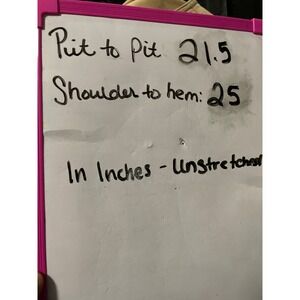 Pit to Pit 21.5
Shoulder to hem: 25
In Inches - Unstretched